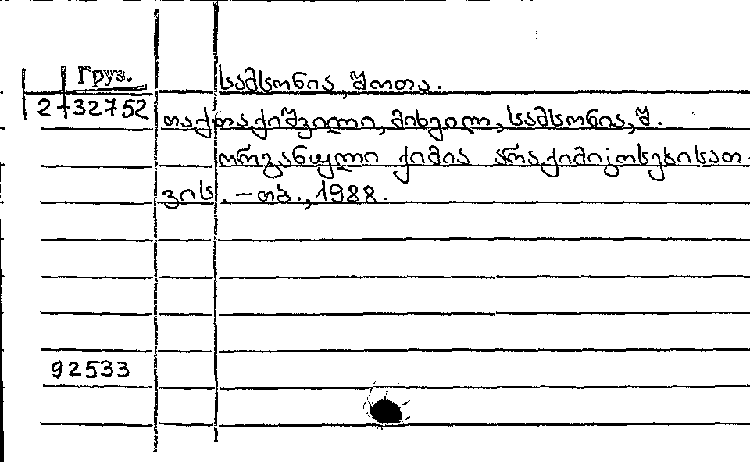 Груз.
სამსონია, შოთა.
2-32752
თაქთაქიშვილი, მიხეილ, სამსონია, შ.
ორგანული ქიმია არაქიმიკოსებისათ-
ვის. – თბ., 1988.
92533